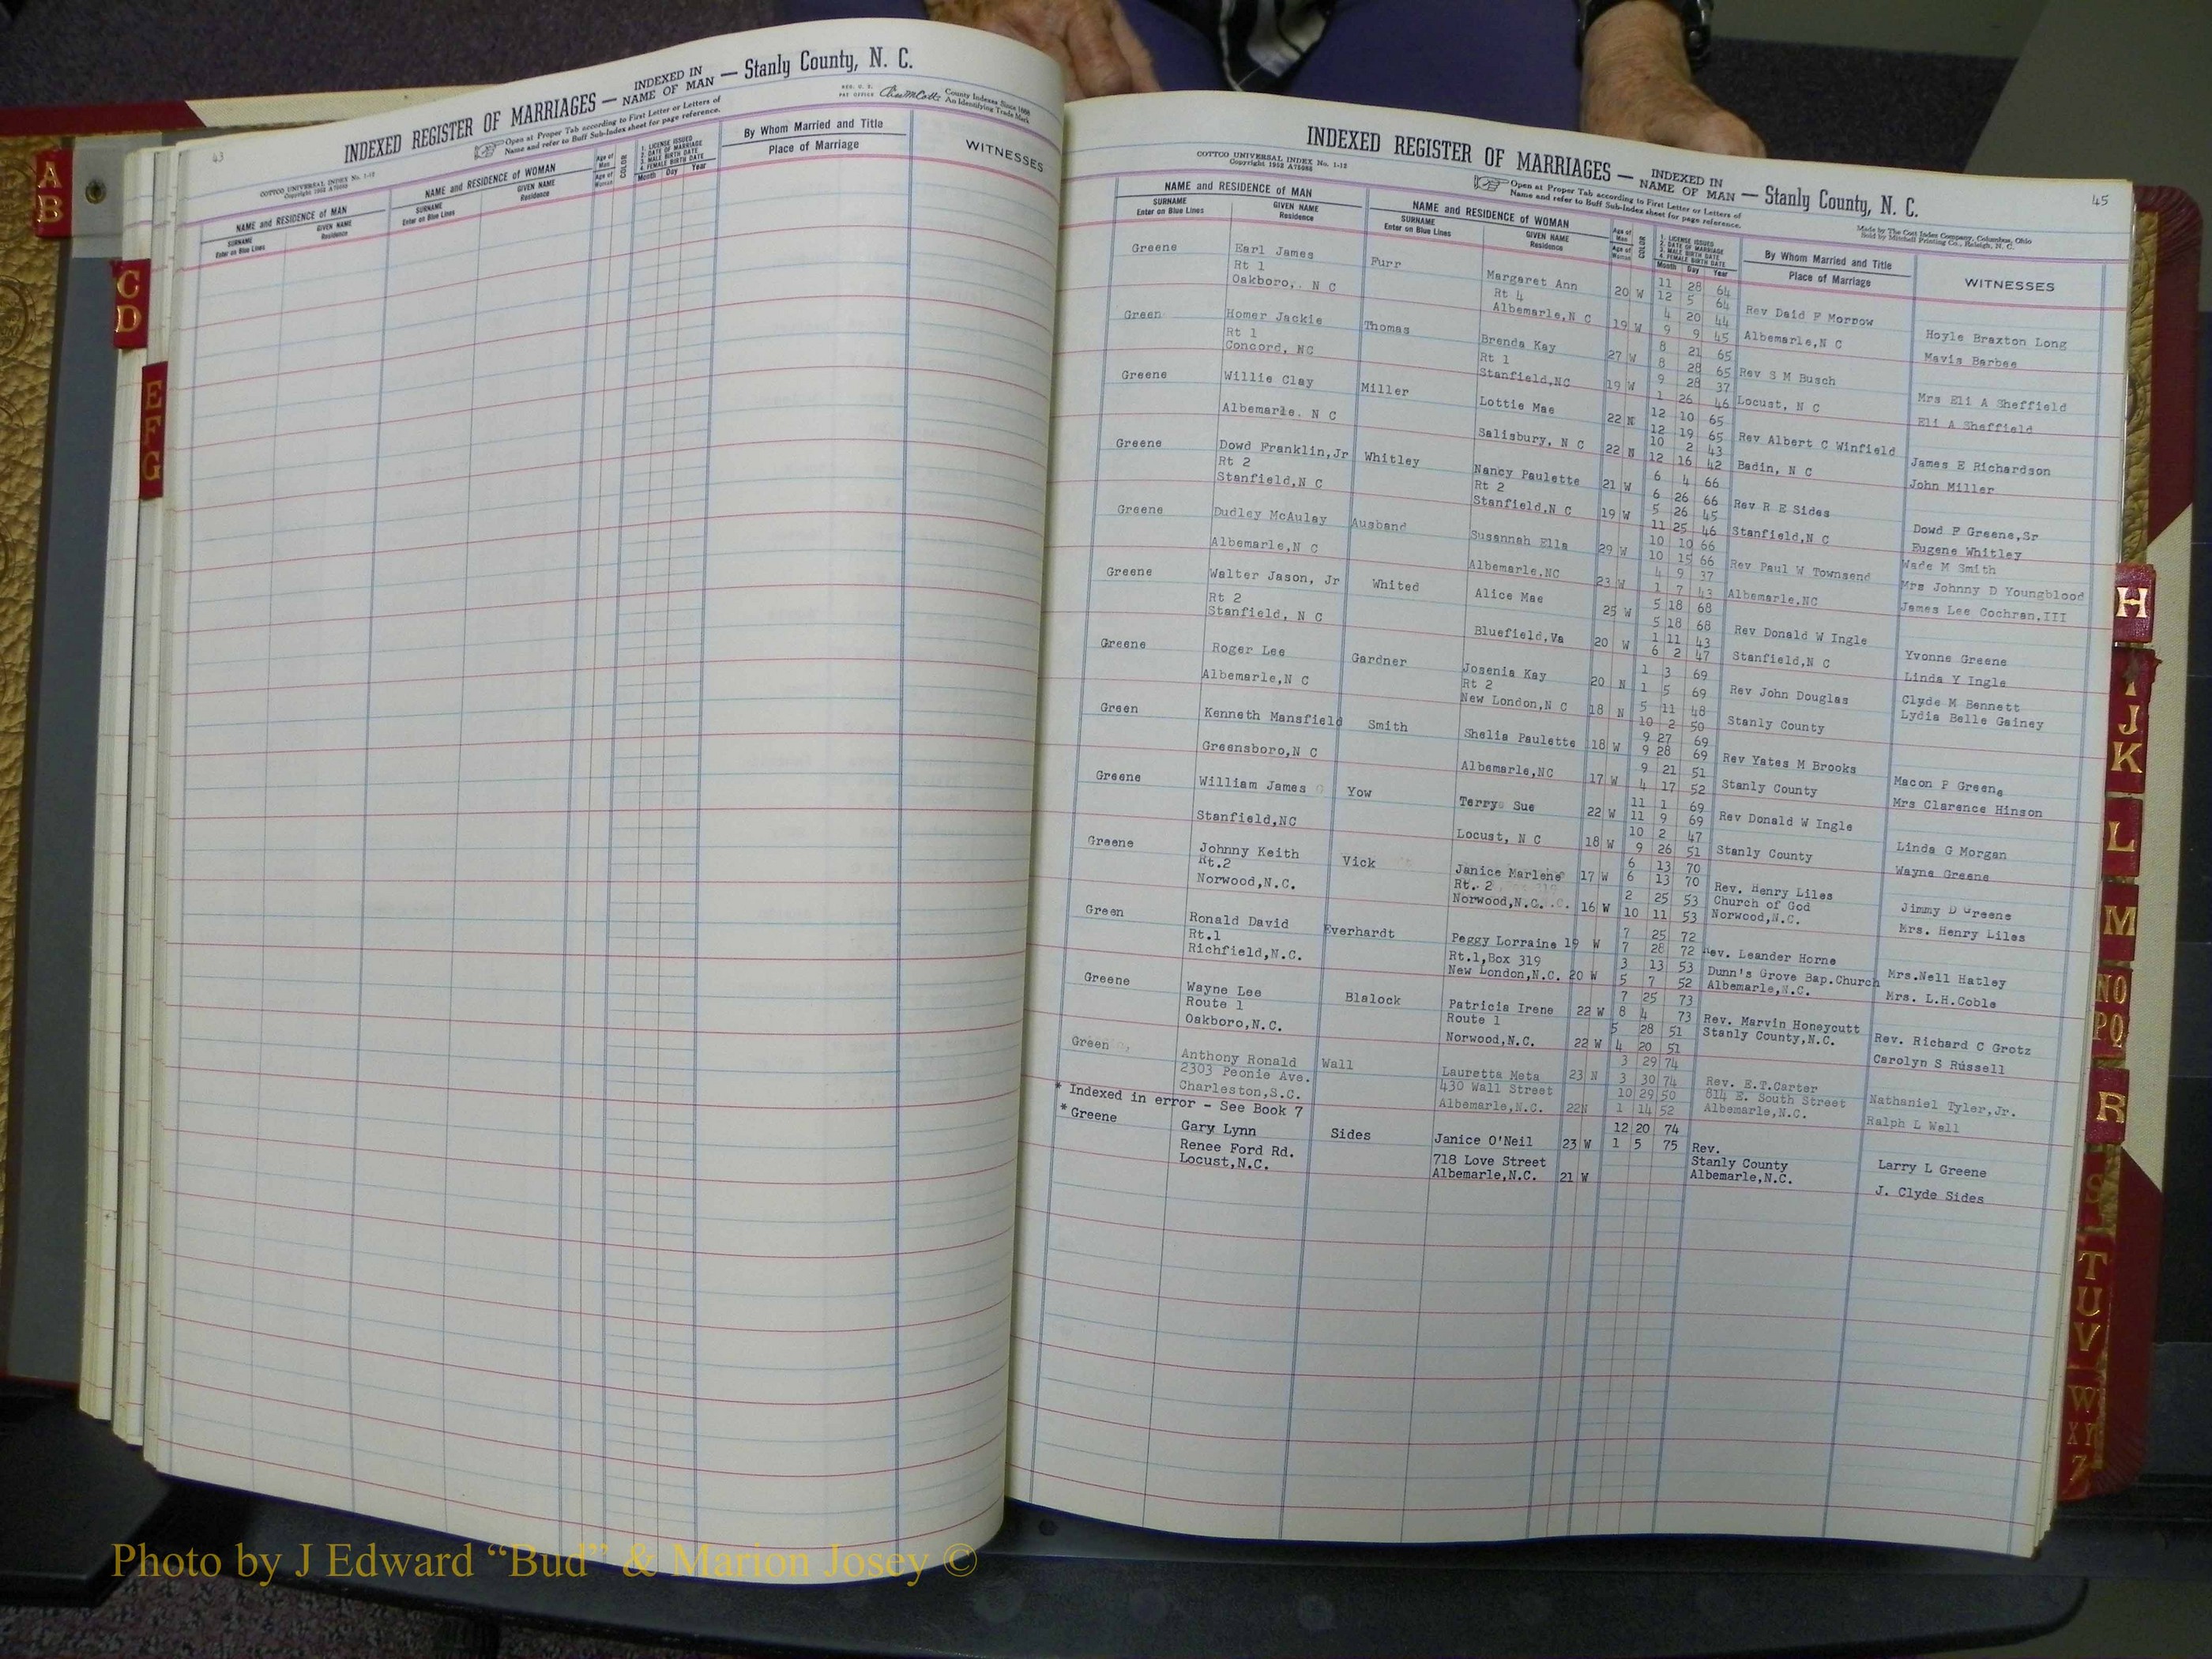 43
INDEXED REGISTER OF MARRIAGES — INDEXED IN NAME OF MAN — Stanly County, N. C.
COTTCO UNIVERSAL INDEX No. 1-12
Copyright 1952 A7508B
Open at Proper Tab according to First Letter or Letters of
Name and refer to Buff Sub-Index sheet for page reference.
REG. U. S. PAT OFFICE
County Indexes Since 1888
An Identifying Trade Mark
NAME and RESIDENCE of MAN
SURNAME Enter on Blue Lines
GIVEN NAME Residence
NAME and RESIDENCE of WOMAN
SURNAME Enter on Blue Lines
GIVEN NAME Residence
Age of Man
Age of Woman
COLOR
1. LICENSE ISSUED
2. DATE OF MARRIAGE
3. MALE BIRTH DATE
4. FEMALE BIRTH DATE
Month Day Year
By Whom Married and Title
Place of Marriage
WITNESSES
45
INDEXED REGISTER OF MARRIAGES — INDEXED IN NAME OF MAN — Stanly County, N. C.
COTTCO UNIVERSAL INDEX No. 1-12
Copyright 1952 A7508B
Open at Proper Tab according to First Letter or Letters of
Name and refer to Buff Sub-Index sheet for page reference.
Made by The Cott Index Company, Columbus, Ohio
Sold by Mitchell Printing Co., Raleigh, N. C.
NAME and RESIDENCE of MAN
SURNAME Enter on Blue Lines
GIVEN NAME Residence
NAME and RESIDENCE of WOMAN
SURNAME Enter on Blue Lines
GIVEN NAME Residence
Age of Man
Age of Woman
COLOR
1. LICENSE ISSUED
2. DATE OF MARRIAGE
3. MALE BIRTH DATE
4. FEMALE BIRTH DATE
Month Day Year
By Whom Married and Title
Place of Marriage
WITNESSES
Greene Earl James Furr Margaret Ann 20 W 11 28 64
Rt 1 Rt 4 12 5 64 Rev Daid F Morrow Hoyle Braxton Long
Oakboro,. N C Albemarle,N C 19 W 4 20 44
9 9 45 Albemarle,N C Mavis Barbee
Green Homer Jackie Thomas Brenda Kay 27 W 8 21 65
Rt 1 Rt 1 8 28 65 Rev S M Busch Mrs Eli A Sheffield
Concord, NC Stanfield,NC 19 W 9 28 37
1 26 46 Locust, N C Eli A Sheffield
Greene Willie Clay Miller Lottie Mae 22 N 12 10 65
12 19 65 Rev Albert C Winfield James E Richardson
Albemarle. N C Salisbury, N C 22 N 10 2 43
12 16 42 Badin, N C John Miller
Greene Dowd Franklin,Jr Whitley Nancy Paulette 21 W 6 4 66
Rt 2 Rt 2 6 26 66 Rev R E Sides Dowd F Greene,Sr
Stanfield,N C Stanfield,N C 19 W 5 26 45
11 25 46 Stanfield,N C Eugene Whitley
Greene Dudley McAulay Ausband Susannah Ella 29 W 10 10 66 Wade M Smith
10 15 66 Rev Paul W Townsend Mrs Johnny D Youngblood
Albemarle,N C Albemarle,NC 23 W 4 9 37
1 7 43 Albemarle,NC James Lee Cochran,III
Greene Walter Jason, Jr Whited Alice Mae 25 W 5 18 68
Rt 2 5 18 68 Rev Donald W Ingle Yvonne Greene
Stanfield, N C Bluefield,Va 20 W 1 11 43
6 2 47 Stanfield,N C Linda Y Ingle
Greene Roger Lee Gardner Josenia Kay 20 N 1 3 69
Rt 2 1 5 69 Rev John Douglas Clyde M Bennett
Albemarle,N C New London,N C 18 N 5 11 48 Lydia Belle Gainey
10 2 50 Stanly County
Green Kenneth Mansfield Smith Shelia Paulette 18 W 9 27 69
9 28 69 Rev Yates M Brooks Macon P Greene
Greensboro,N C Albemarle,NC 17 W 9 21 51
4 17 52 Stanly County Mrs Clarence Hinson
Greene William James Yow Terry Sue 22 W 11 1 69
11 9 69 Rev Donald W Ingle Linda G Morgan
Stanfield,NC Locust, N C 18 W 10 2 47
9 26 51 Stanly County Wayne Greene
Greene Johnny Keith Vick Janice Marlene 17 W 6 13 70
Rt.2 Rt. 2 6 13 70 Rev. Henry Liles Jimmy D Greene
Norwood,N.C. Norwood,N.C. 16 W 2 25 53 Church of God
10 11 53 Norwood,N.C. Mrs. Henry Liles
Green Ronald David Everhardt Peggy Lorraine 19 W 7 25 72
Rt.1 Rt.1,Box 319 7 28 72 Rev. Leander Horne Mrs.Nell Hatley
Richfield,N.C. New London,N.C. 20 W 3 13 53 Dunn's Grove Bap.Church
5 7 52 Albemarle,N.C. Mrs. L.H.Coble
Greene Wayne Lee Blalock Patricia Irene 22 W 7 25 73
Route 1 Route 1 8 4 73 Rev. Marvin Honeycutt Rev. Richard C Grotz
Oakboro,N.C. Norwood,N.C. 22 W 5 28 51 Stanly County,N.C.
4 20 51 Carolyn S Russell
Green Anthony Ronald Wall Lauretta Meta 23 N 3 29 74
2303 Peonie Ave. 430 Wall Street 3 30 74 Rev. E.T.Carter Nathaniel Tyler,Jr.
Charleston,S.C. Albemarle,N.C. 22N 10 29 50 814 E. South Street
1 14 52 Albemarle,N.C. Ralph L Wall
* Indexed in error - See Book 7
* Greene Gary Lynn Sides Janice O'Neil 23 W 12 20 74
Renee Ford Rd. 718 Love Street 1 5 75 Rev. Larry L Greene
Locust,N.C. Albemarle,N.C. 21 W Stanly County
Albemarle,N.C. J. Clyde Sides
A
B
C
D
E
F
G
H
I
J
K
L
M
NO
PQ
R
S
T
U
V
W
X Y
Z
Photo by J Edward “Bud” & Marion Josey ©